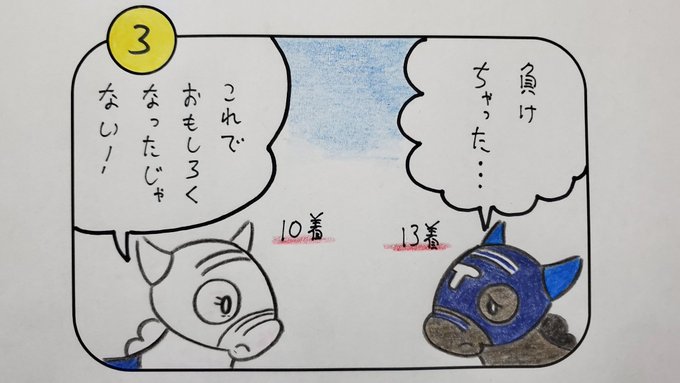 3
負け
ちゃった…
これで
おもしろく
なったじゃ
ない!
10着
13着
T